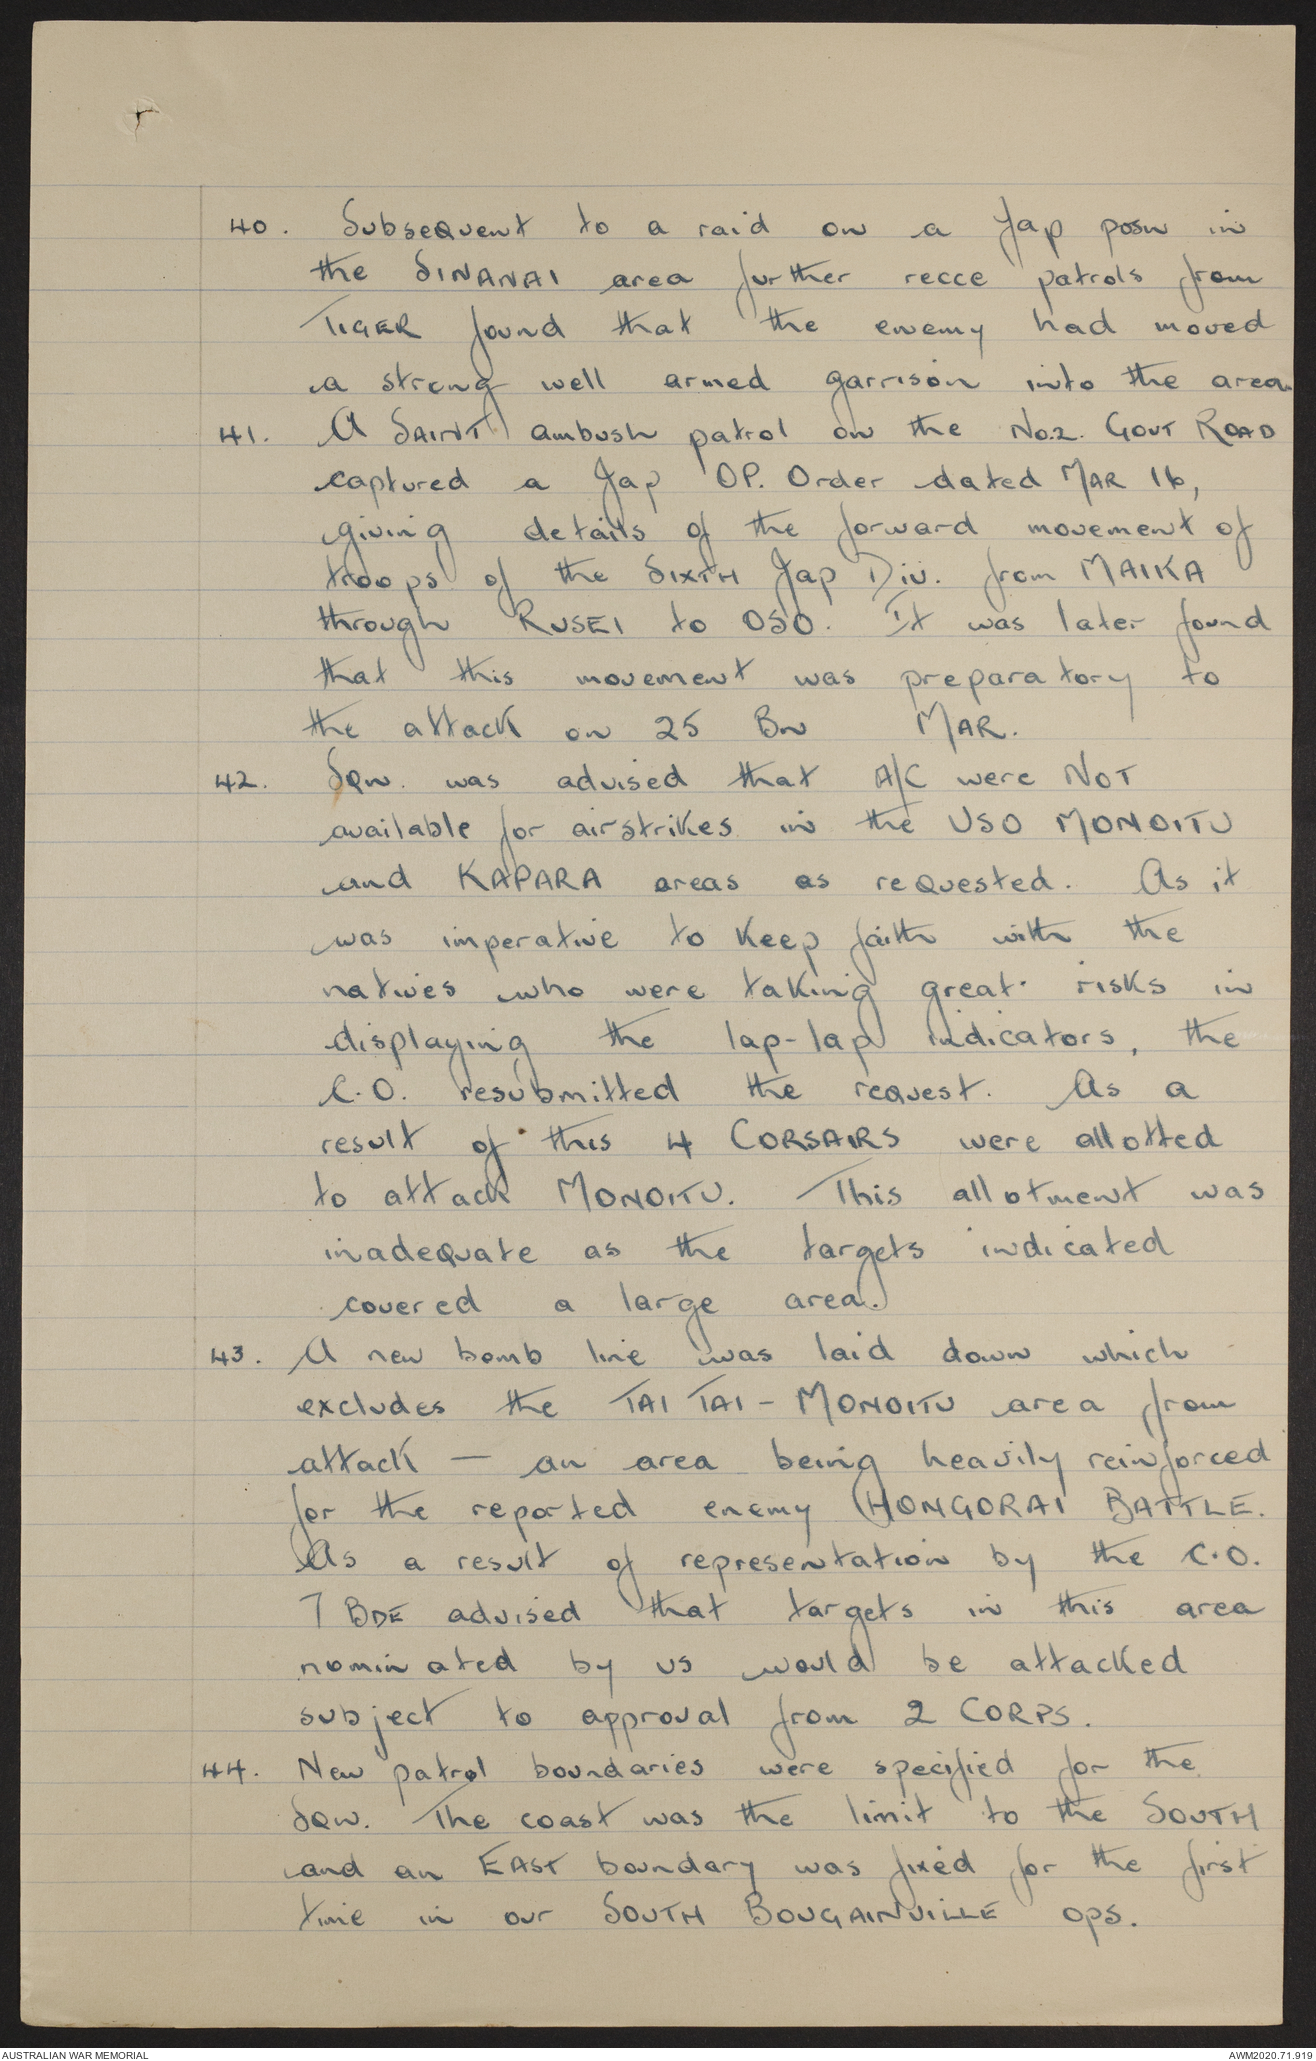 40. Subsequent to a raid on a Jap posn in
the SINANAI area further recce patrols from
TIGER found that the enemy had moved
a strong well armed garrison into the area.
41. A SAINT ambush patrol on the No.2. GOVT ROAD
captured a Jap OP. Order dated MAR 16,
giving details of the forward movement of
troops of the SIXTH Jap Div. from MAIKA
through RUSEI to OSO. It was later found
that this movement was preparatory to
the attack on 25 Bn MAR.
42. Sqn. was advised that A/C were NOT
available for airstrikes in the USO MONOITU
and KAPARA areas as requested. As it
was imperative to keep faith with the
natives who were taking great risks in
displaying the lap-lap indicators, the
C.O. resubmitted the request. As a
result of this 4 CORSAIRS were allotted
to attack MONOITU. This allotment was
inadequate as the targets indicated
covered a large area.
43. A new bomb line was laid down which
excludes the TAI TAI - MONOITU area from
attack — an area being heavily reinforced
for the reported enemy HONGORAI BATTLE.
As a result of representation by the C.O.
7 BDE advised that targets in this area
nominated by us would be attacked
subject to approval from 2 CORPS.
44. New patrol boundaries were specified for the
Sqn. The coast was the limit to the SOUTH
and an EAST boundary was fixed for the first
time in our SOUTH BOUGAINVILLE ops.
AUSTRALIAN WAR MEMORIAL
AWM2020.71.919